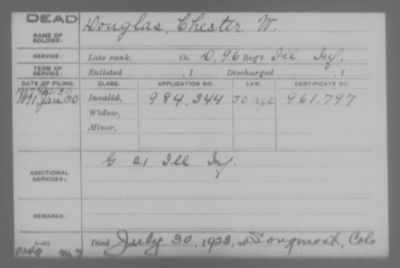 DEAD
NAME OF SOLDIER: Douglas, Chester W.
SERVICE: Late rank, Co. D, 96 Reg't Ill Inf.
TERM OF SERVICE: Enlisted , 1 Discharged , 1
DATE OF FILING. CLASS. APPLICATION NO. LAW. CERTIFICATE NO.
1891 Jan 30 Invalid, 984,344 961,797
Widow,
Minor,
ADDITIONAL SERVICES: G 21 Ill Inf.
REMARKS:
Died July 30, 1923, at Longmont, Colo